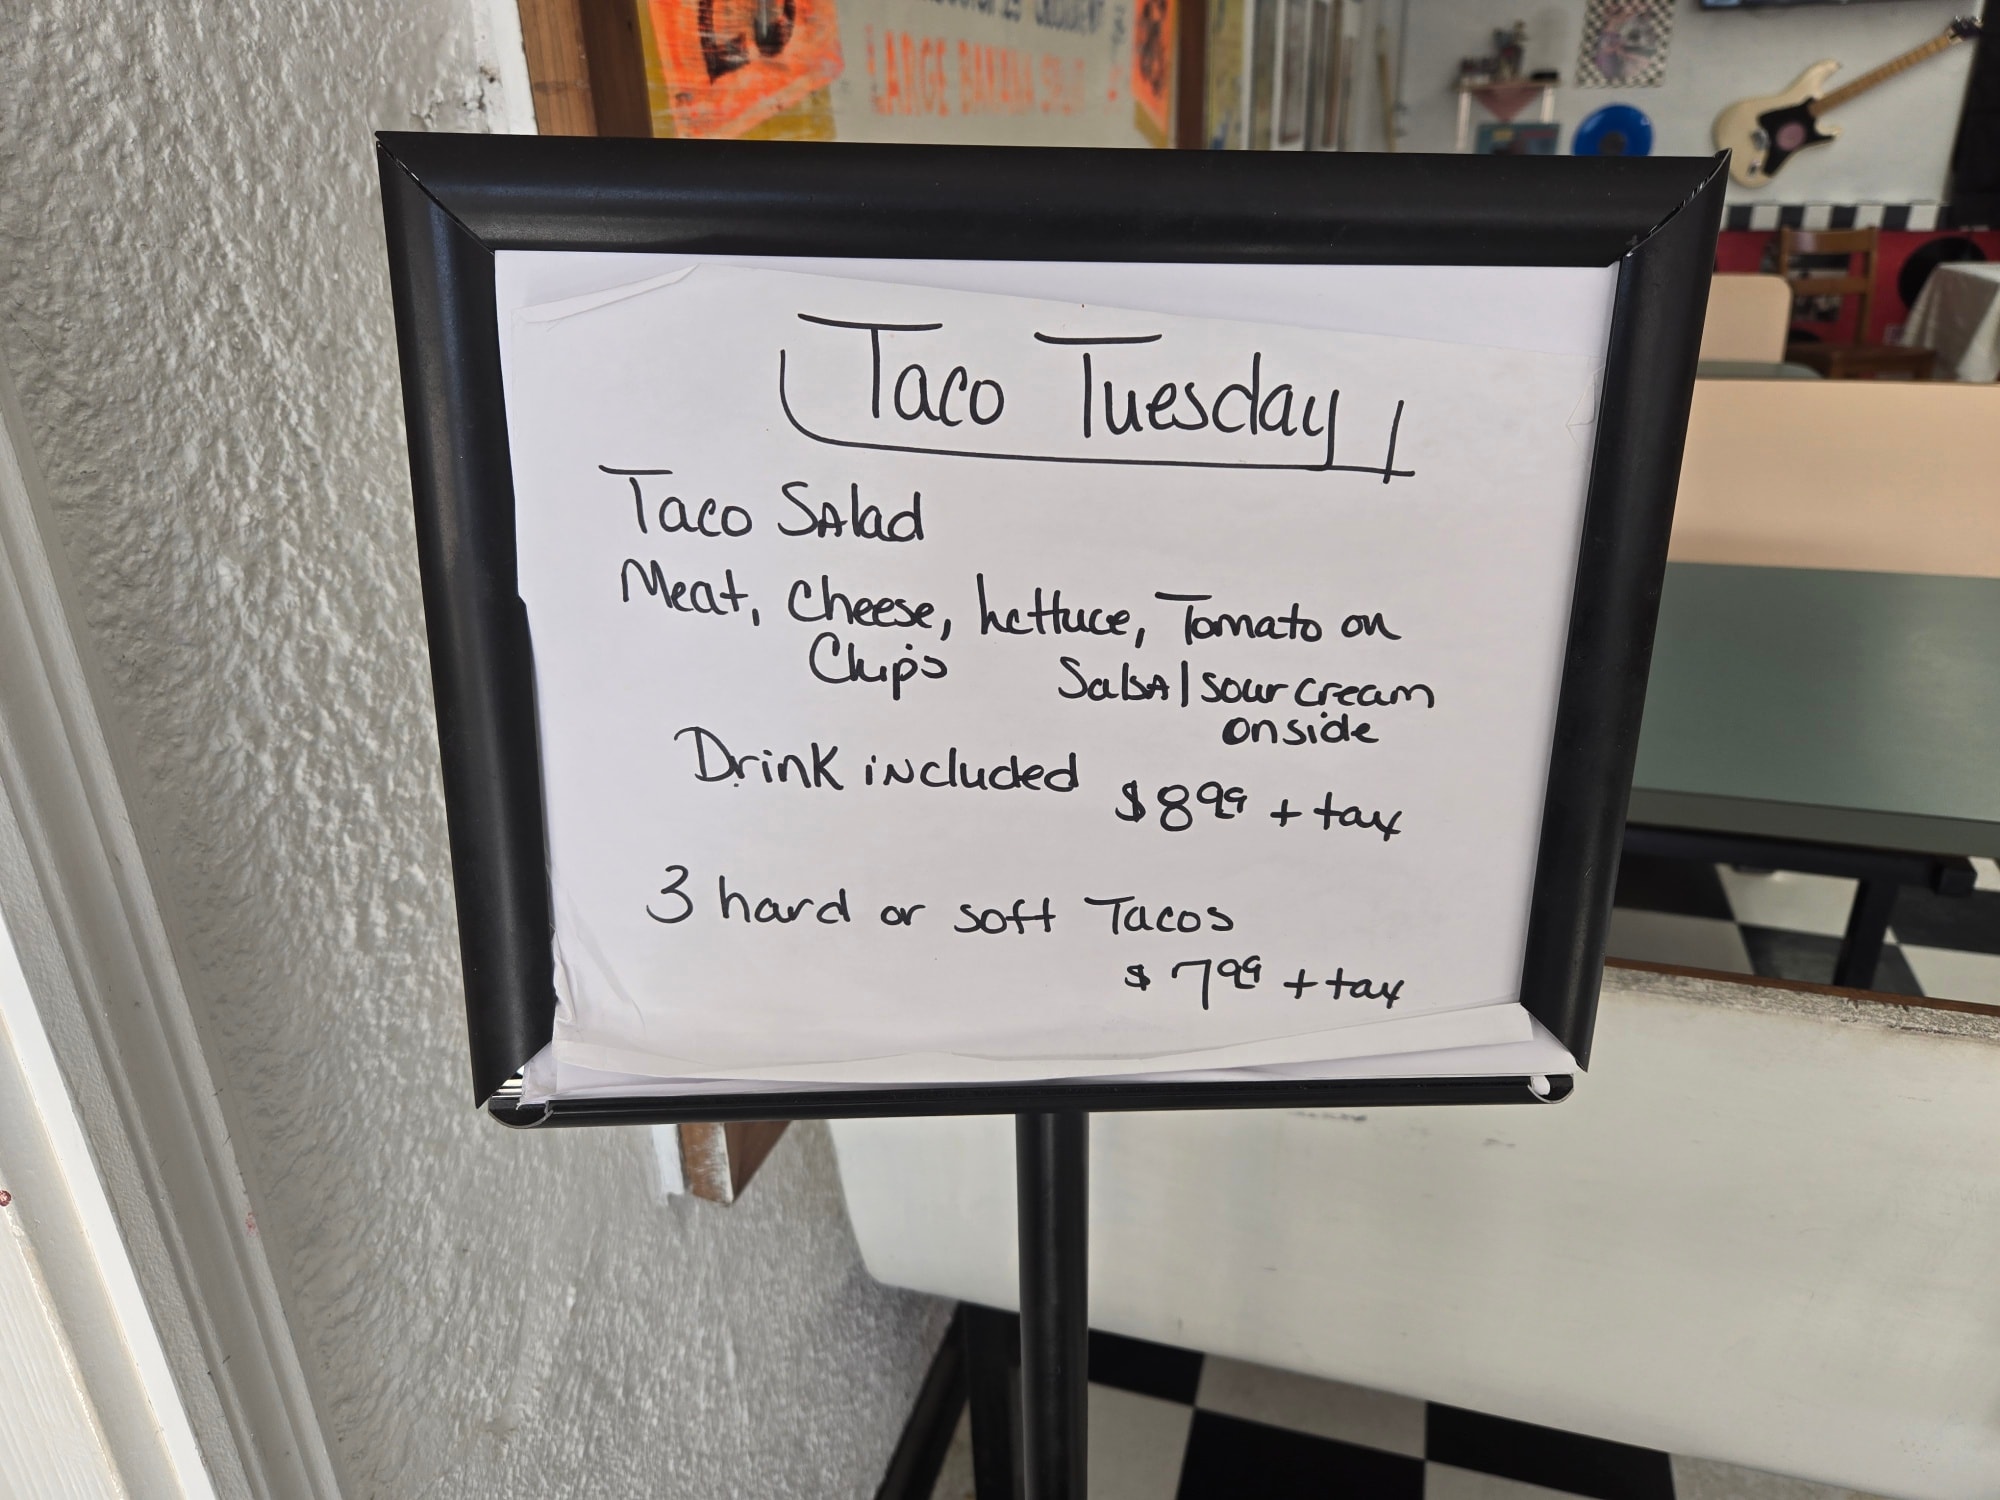 LARGE BANANA SPLIT
Taco Tuesday
Taco Salad
Meat, Cheese, Lettuce, Tomato on
Chips
Salsa/sour cream
on side
Drink included
$8.99 + tax
3 hard or soft Tacos
$7.99 + tax